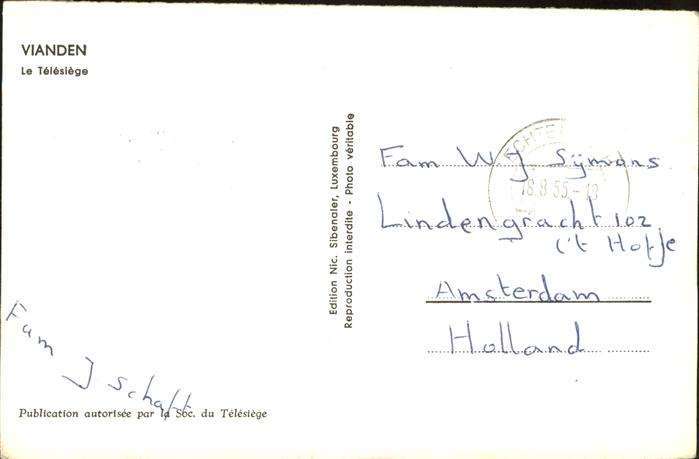 VIANDEN
Le Télésiège
Edition Nic. Sibenaler, Luxembourg
Reproduction interdite - Photo véritable
Fam W J Sijmons
Lindengracht 102
('t Hofje
Amsterdam
Holland
18.8.55-18
Fam J Schaft
Publication autorisée par la Soc. du Télésiège